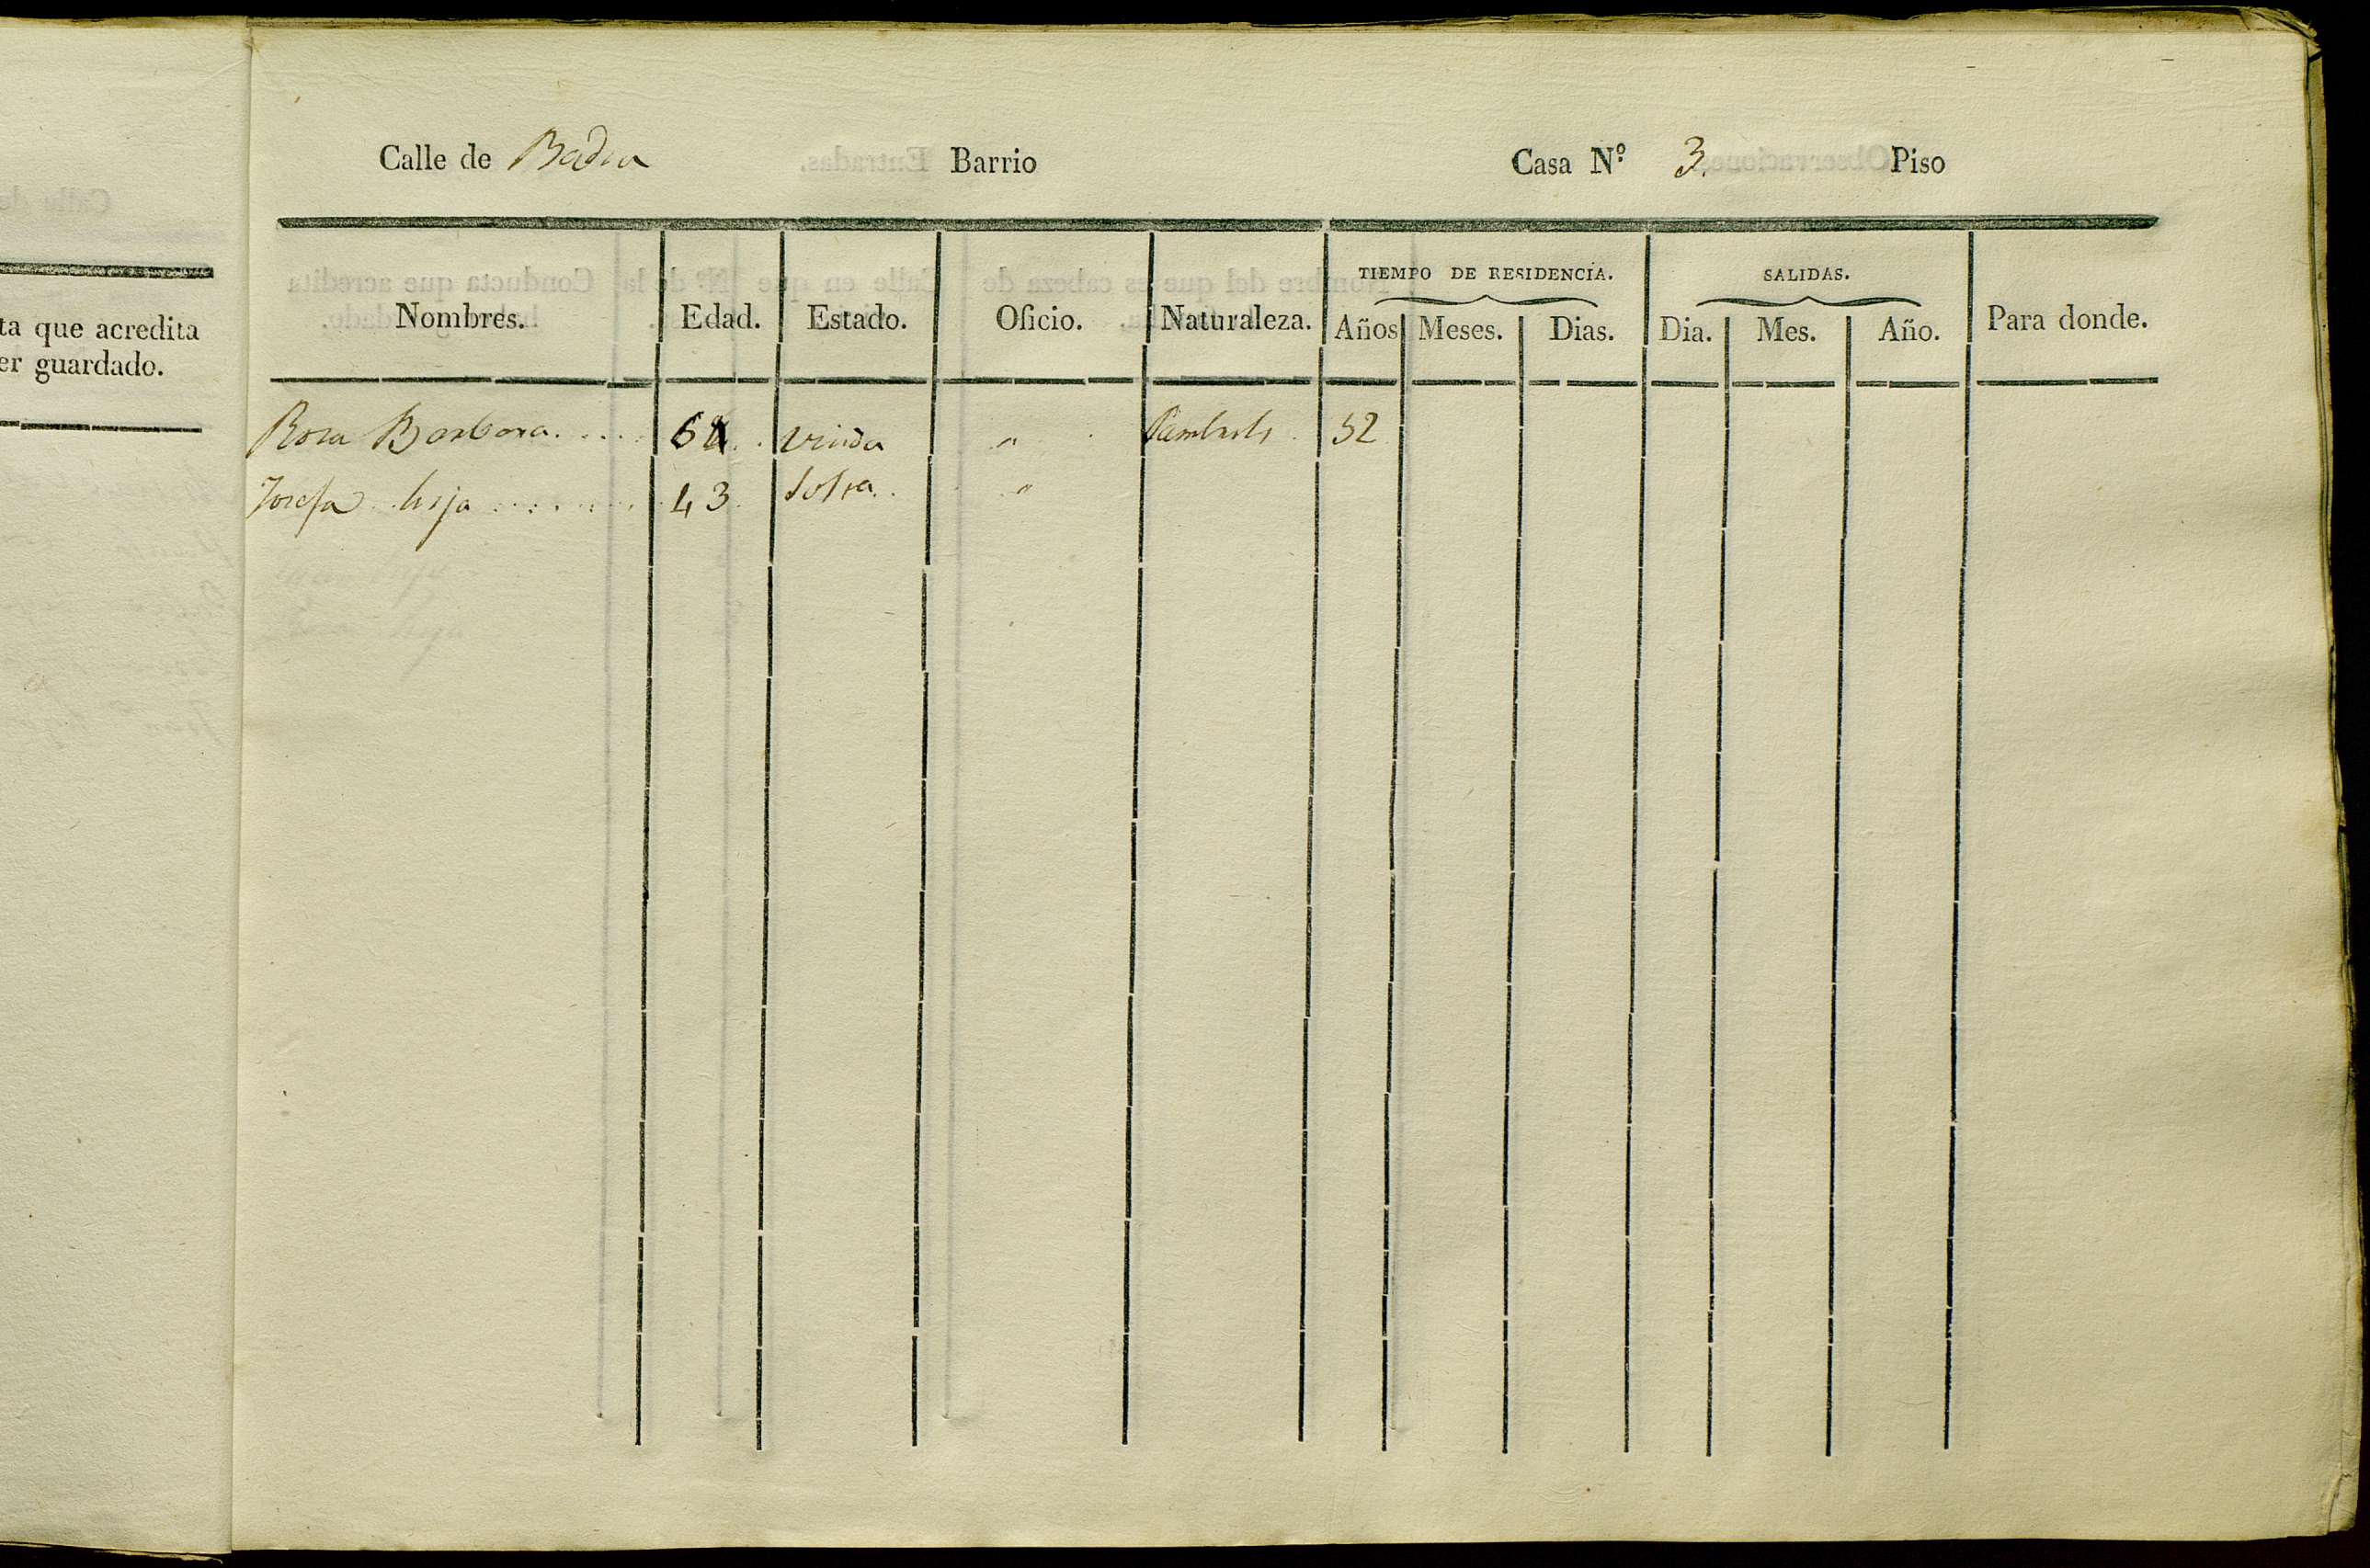 Calle de Badia Barrio Casa Nº 3. Piso
TIEMPO DE RESIDENCIA. SALIDAS.
Nombres. Edad. Estado. Oficio. Naturaleza. Años Meses. Dias. Dia. Mes. Año. Para donde.
ta que acredita
er guardado.
Rosa Barbara. . . . . viuda " 52
Josefa hija . . . . . . 43 Solra. "